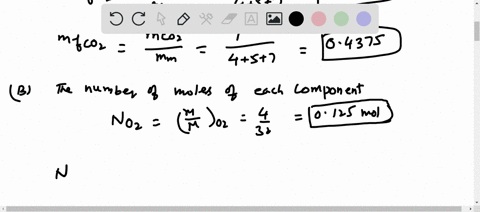 4+5+7
mfCO2 = mCO2/mm = 7/4+5+7 = 0.4375
(B) The number of moles of each component
NO2 = (m/M)O2 = 4/32 = 0.125 mol
N